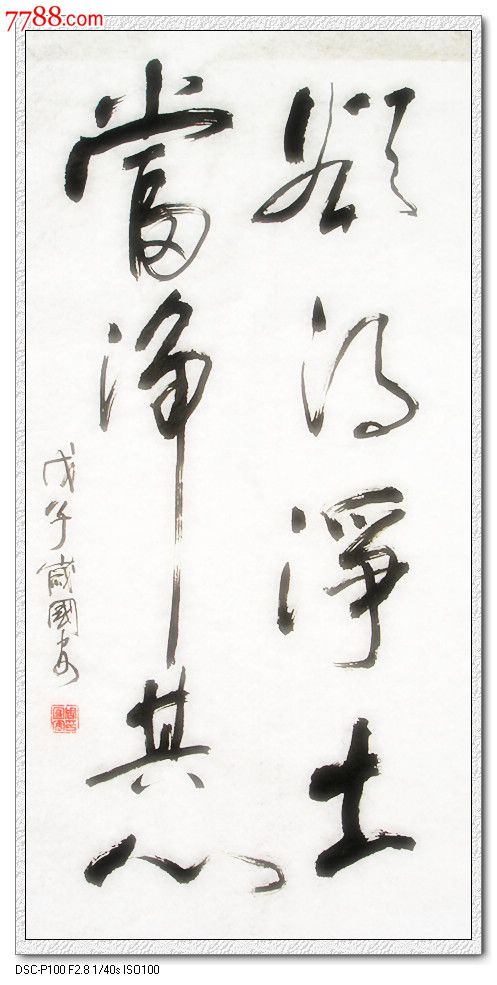 7788.com
欲得淨土
當净其心
戊子歲國安
DSC-P100 F2.8 1/40s ISO100